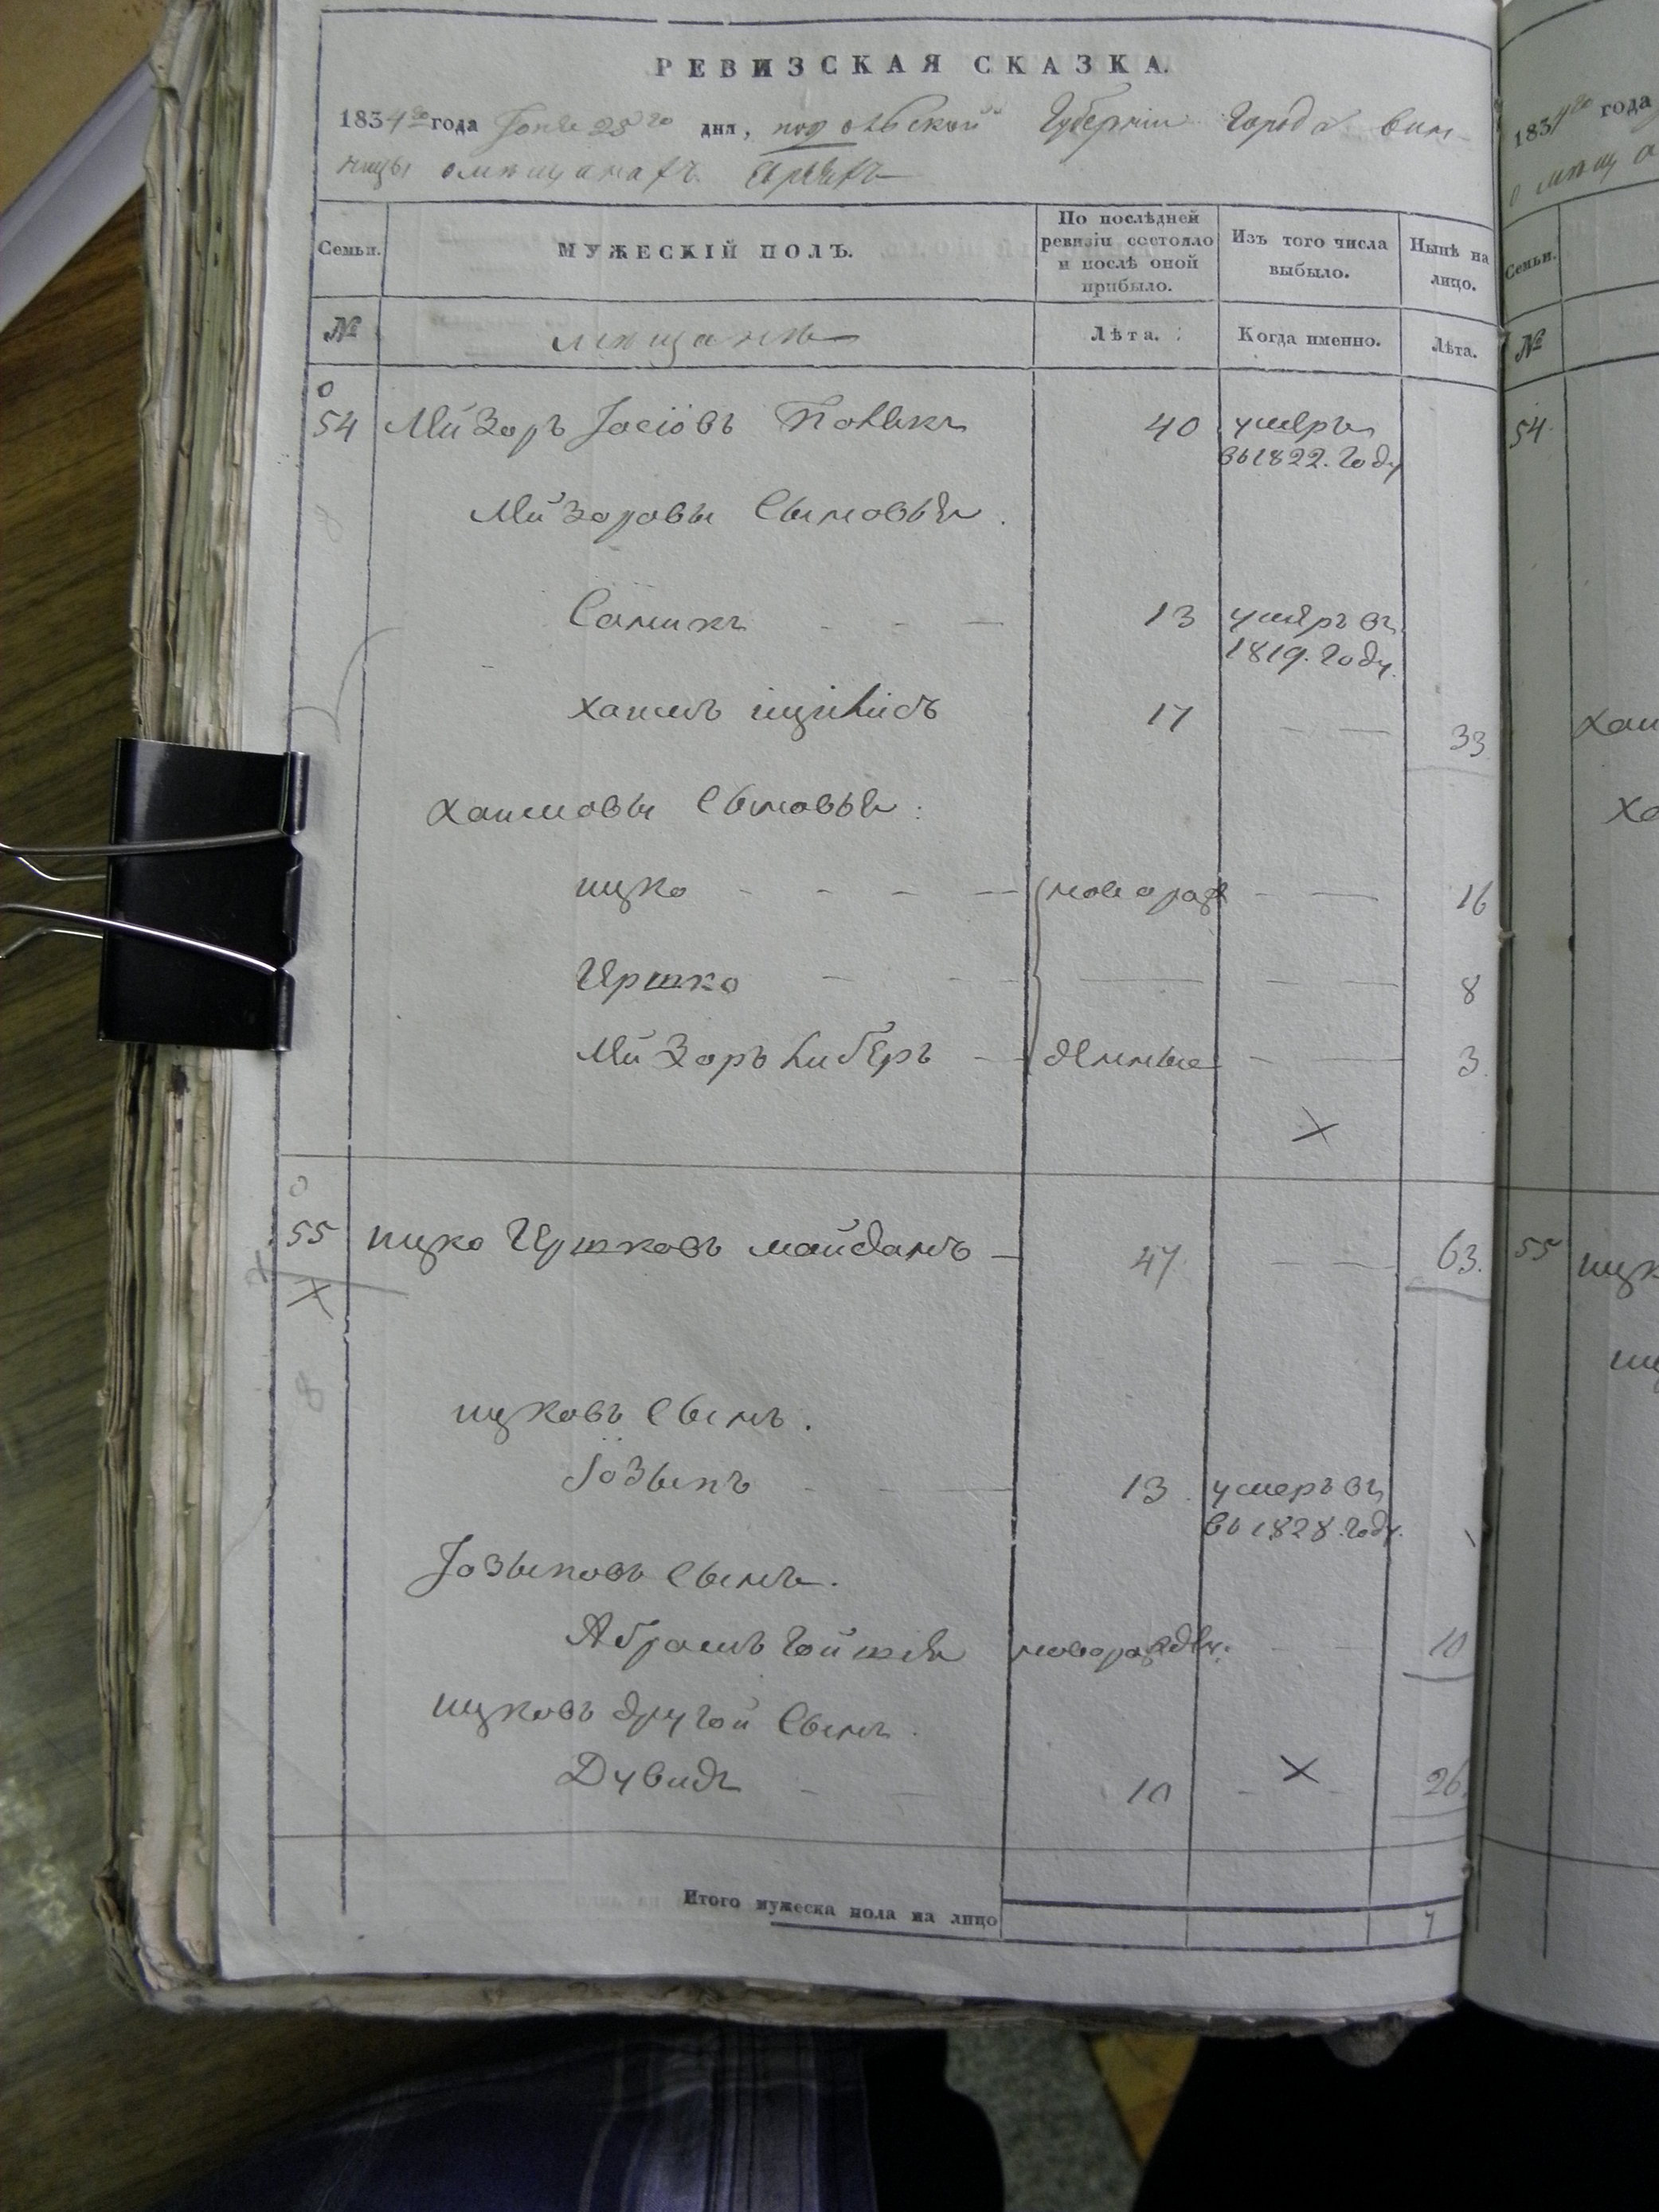 РЕВИЗСКАЯ СКАЗКА.
1834го года Іюня 25го дня, подольской Губерніи Города вин-
ницы омѣщанахъ Евреяхъ
Семьи.
МУЖЕСКІЙ ПОЛЪ.
По послѣдней ревизіи состояло и послѣ оной прибыло.
Изъ того числа выбыло.
Нынѣ на лицо.
№
мѣщане
Лѣта.
Когда именно.
Лѣта.
54 Мейзоръ Іосіовъ 40 умеръ
въ 1822. году
Мейзоровы Сыновья.
13 умеръ въ
1819. году.
Хаимъ 17 33
Хаимовы Сыновья:
ицко новорож 16
Иршко 8
Мейзоръ Либеръ денные 3
55 ицко Иршковъ майданъ 47 63.
ицковъ Сынъ.
Іозыпъ 13 умеръ въ
въ 1828. году.
Іозыповъ Сынъ.
Абрамъ новорожден. 10
ицковъ другой Сынъ.
Дувидъ 10 26
Итого мужеска пола на лицо 7
1834го года
Семьи.
№
54
Хаи
Ха
55 ицк
иц